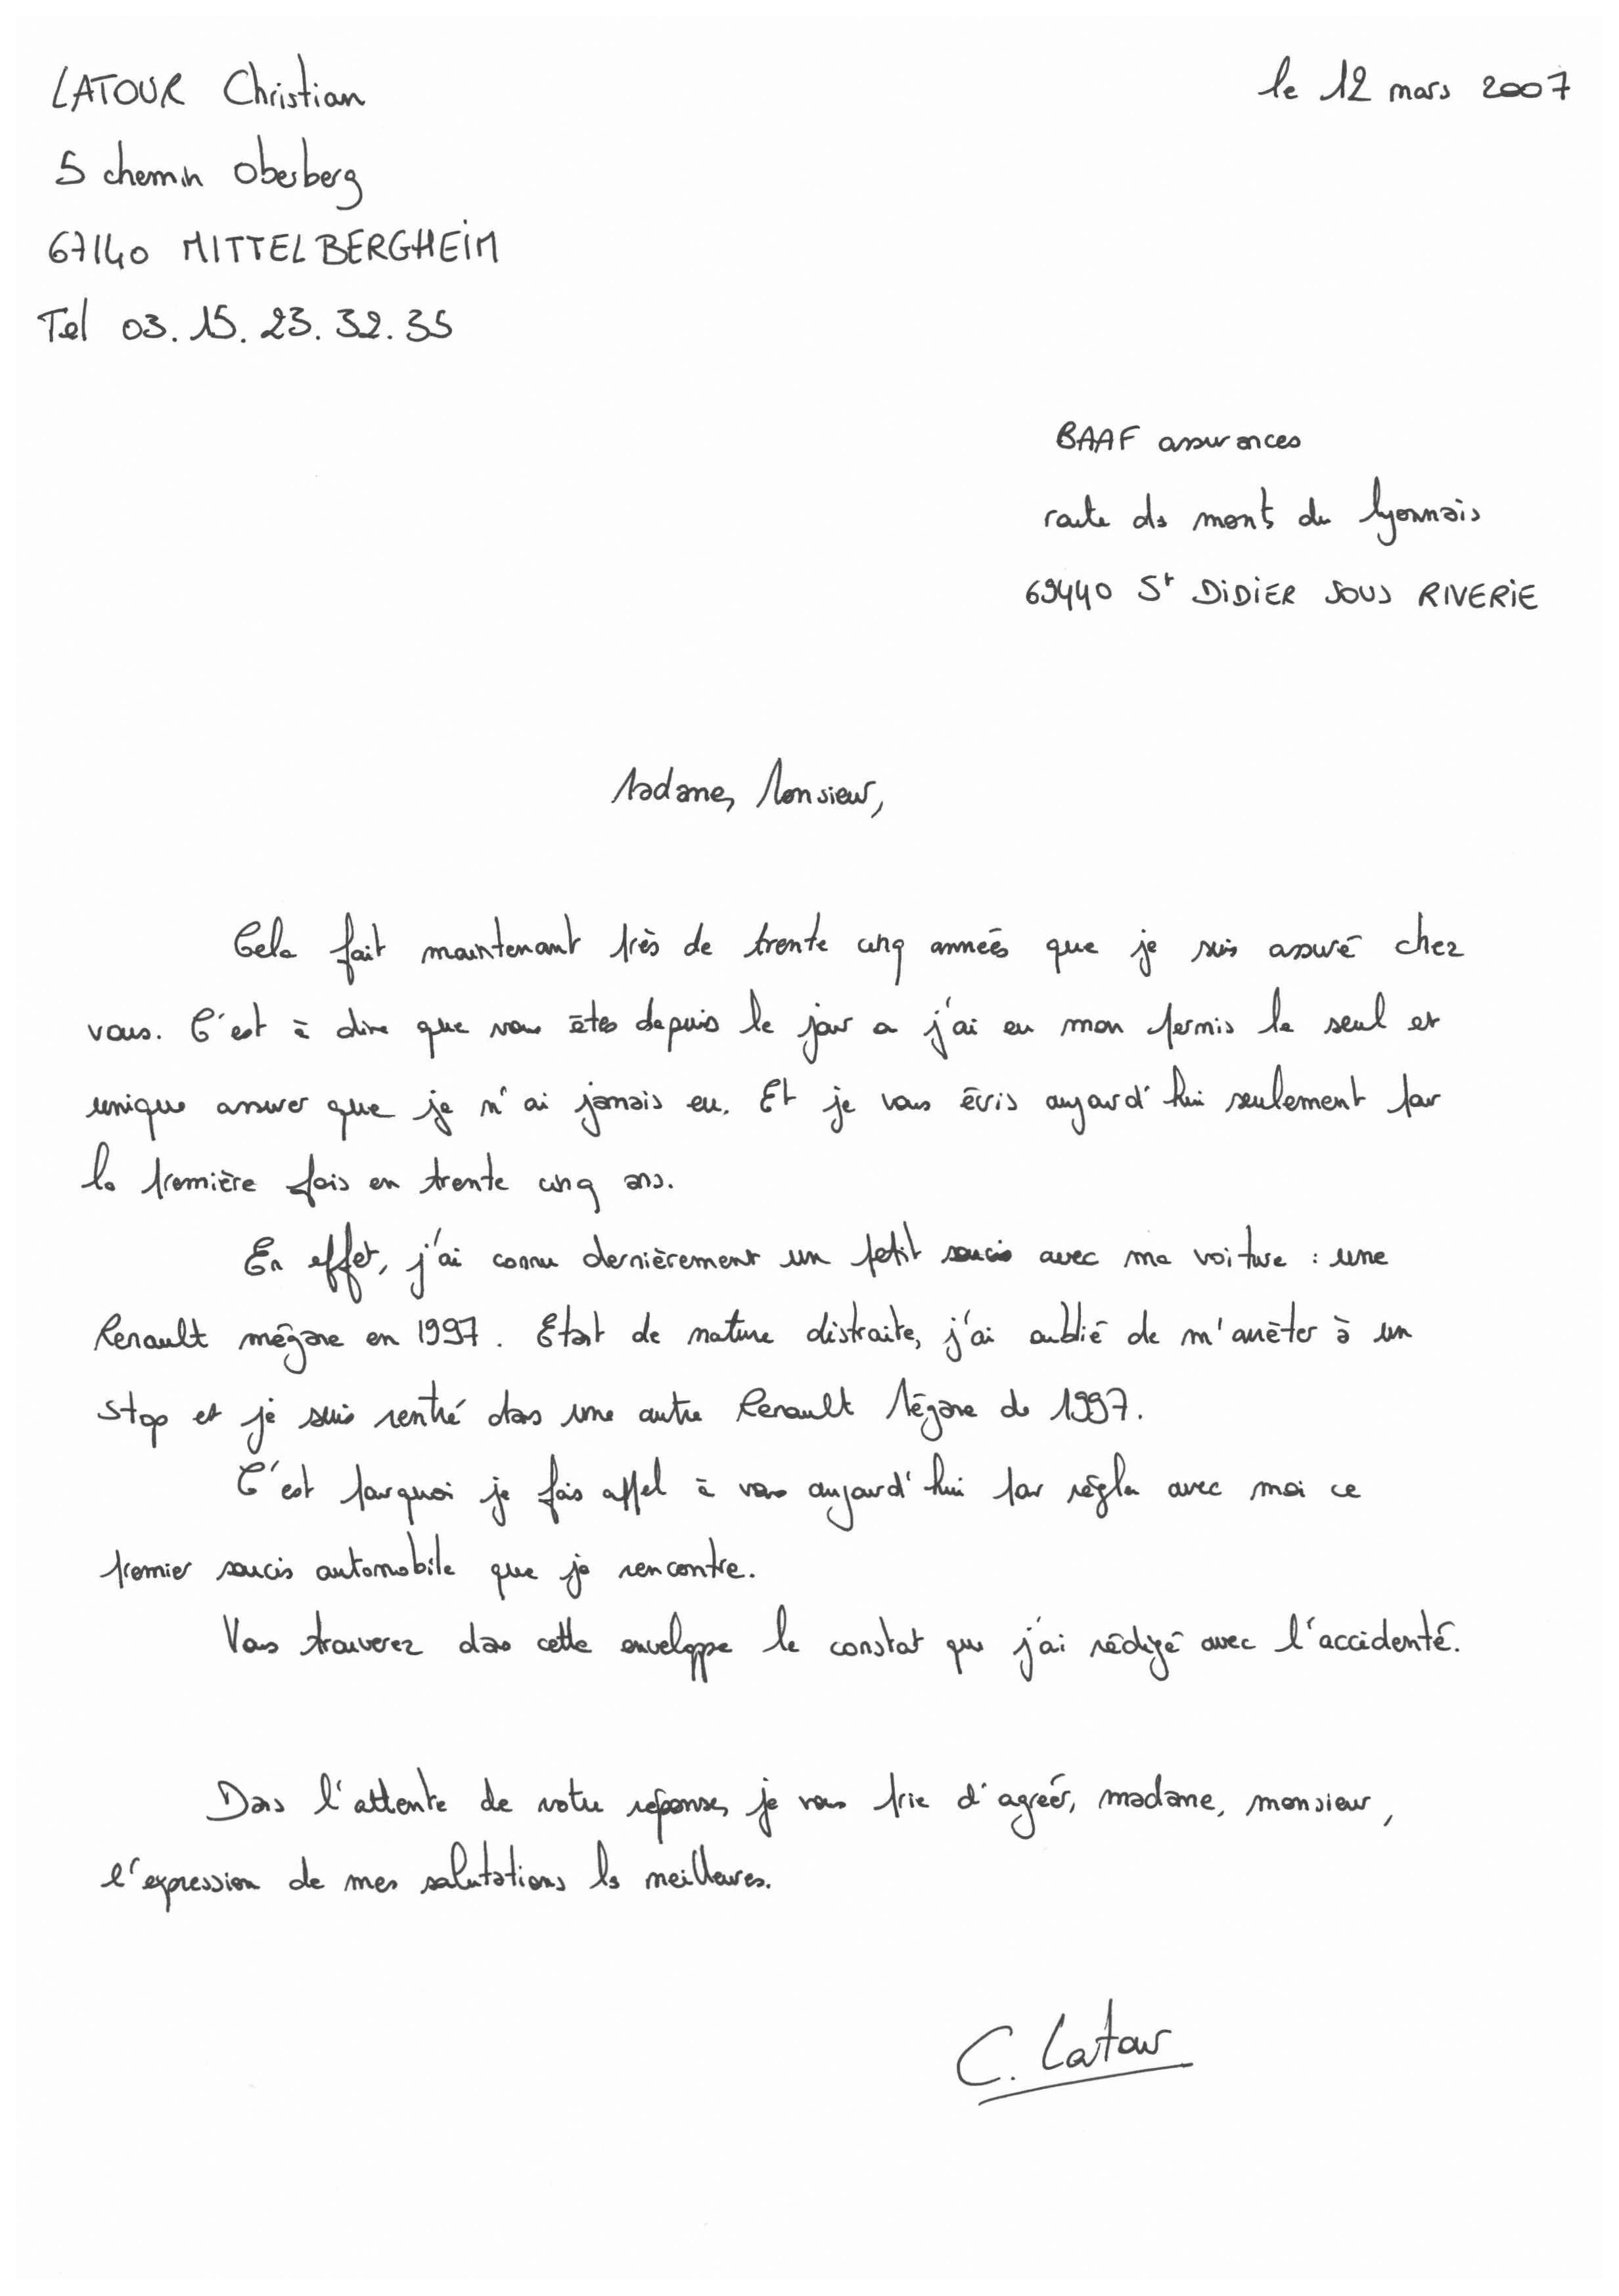 LATOUR Christian
le 12 mars 2007
5 chemin Oberberg
67140 MITTELBERGHEIM
Tel 03.15.23.32.35
BAAF assurances
route ds mont du lyonnais
69440 St DIDIER SOUS RIVERIE
Madame, Monsieur,
Cela fait maintenant près de trente cinq années que je suis assuré chez
vous. C'est à dire que vous êtes depuis le jour ou j'ai eu mon permis le seul et
unique assureur que je n'ai jamais eu. Et je vous écris aujourd'hui seulement pour
la première fois en trente cinq ans.
En effet, j'ai connu dernièrement un petit soucis avec ma voiture : une
Renault mégane en 1997. Etant de nature distraite, j'ai oublié de m'arrêter à un
stop et je suis rentré dans une autre Renault Mégane de 1997.
C'est pourquoi je fais appel à vous aujourd'hui pour régler avec moi ce
premier soucis automobile que je rencontre.
Vous trouverez dans cette enveloppe le constat que j'ai rédigé avec l'accidenté.
Dans l'attente de votre réponse, je vous prie d'agréer, madame, monsieur,
l'expression de mes salutations les meilleures.
C. Latour